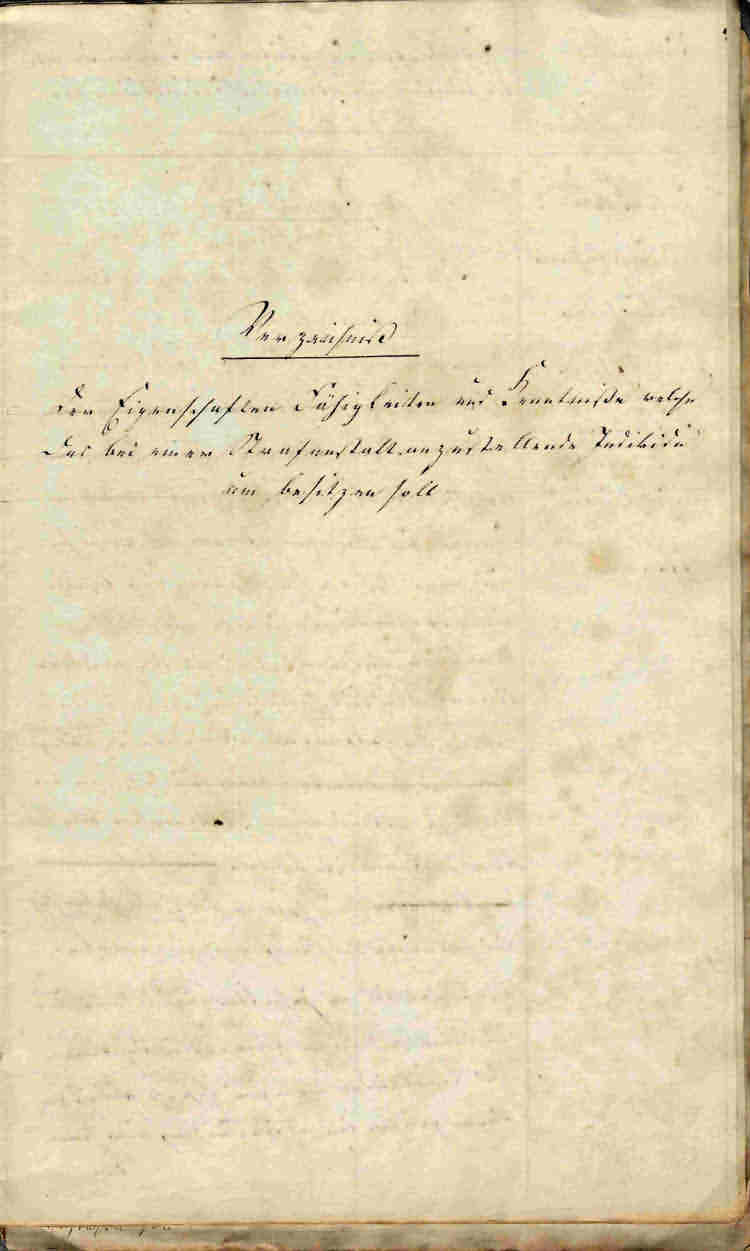 Verzeichniß
der Eigenschaften Fähigkeiten und Kenntniße welche
das bei einer Strafanstalt anzustellende Individu
um besitzen soll